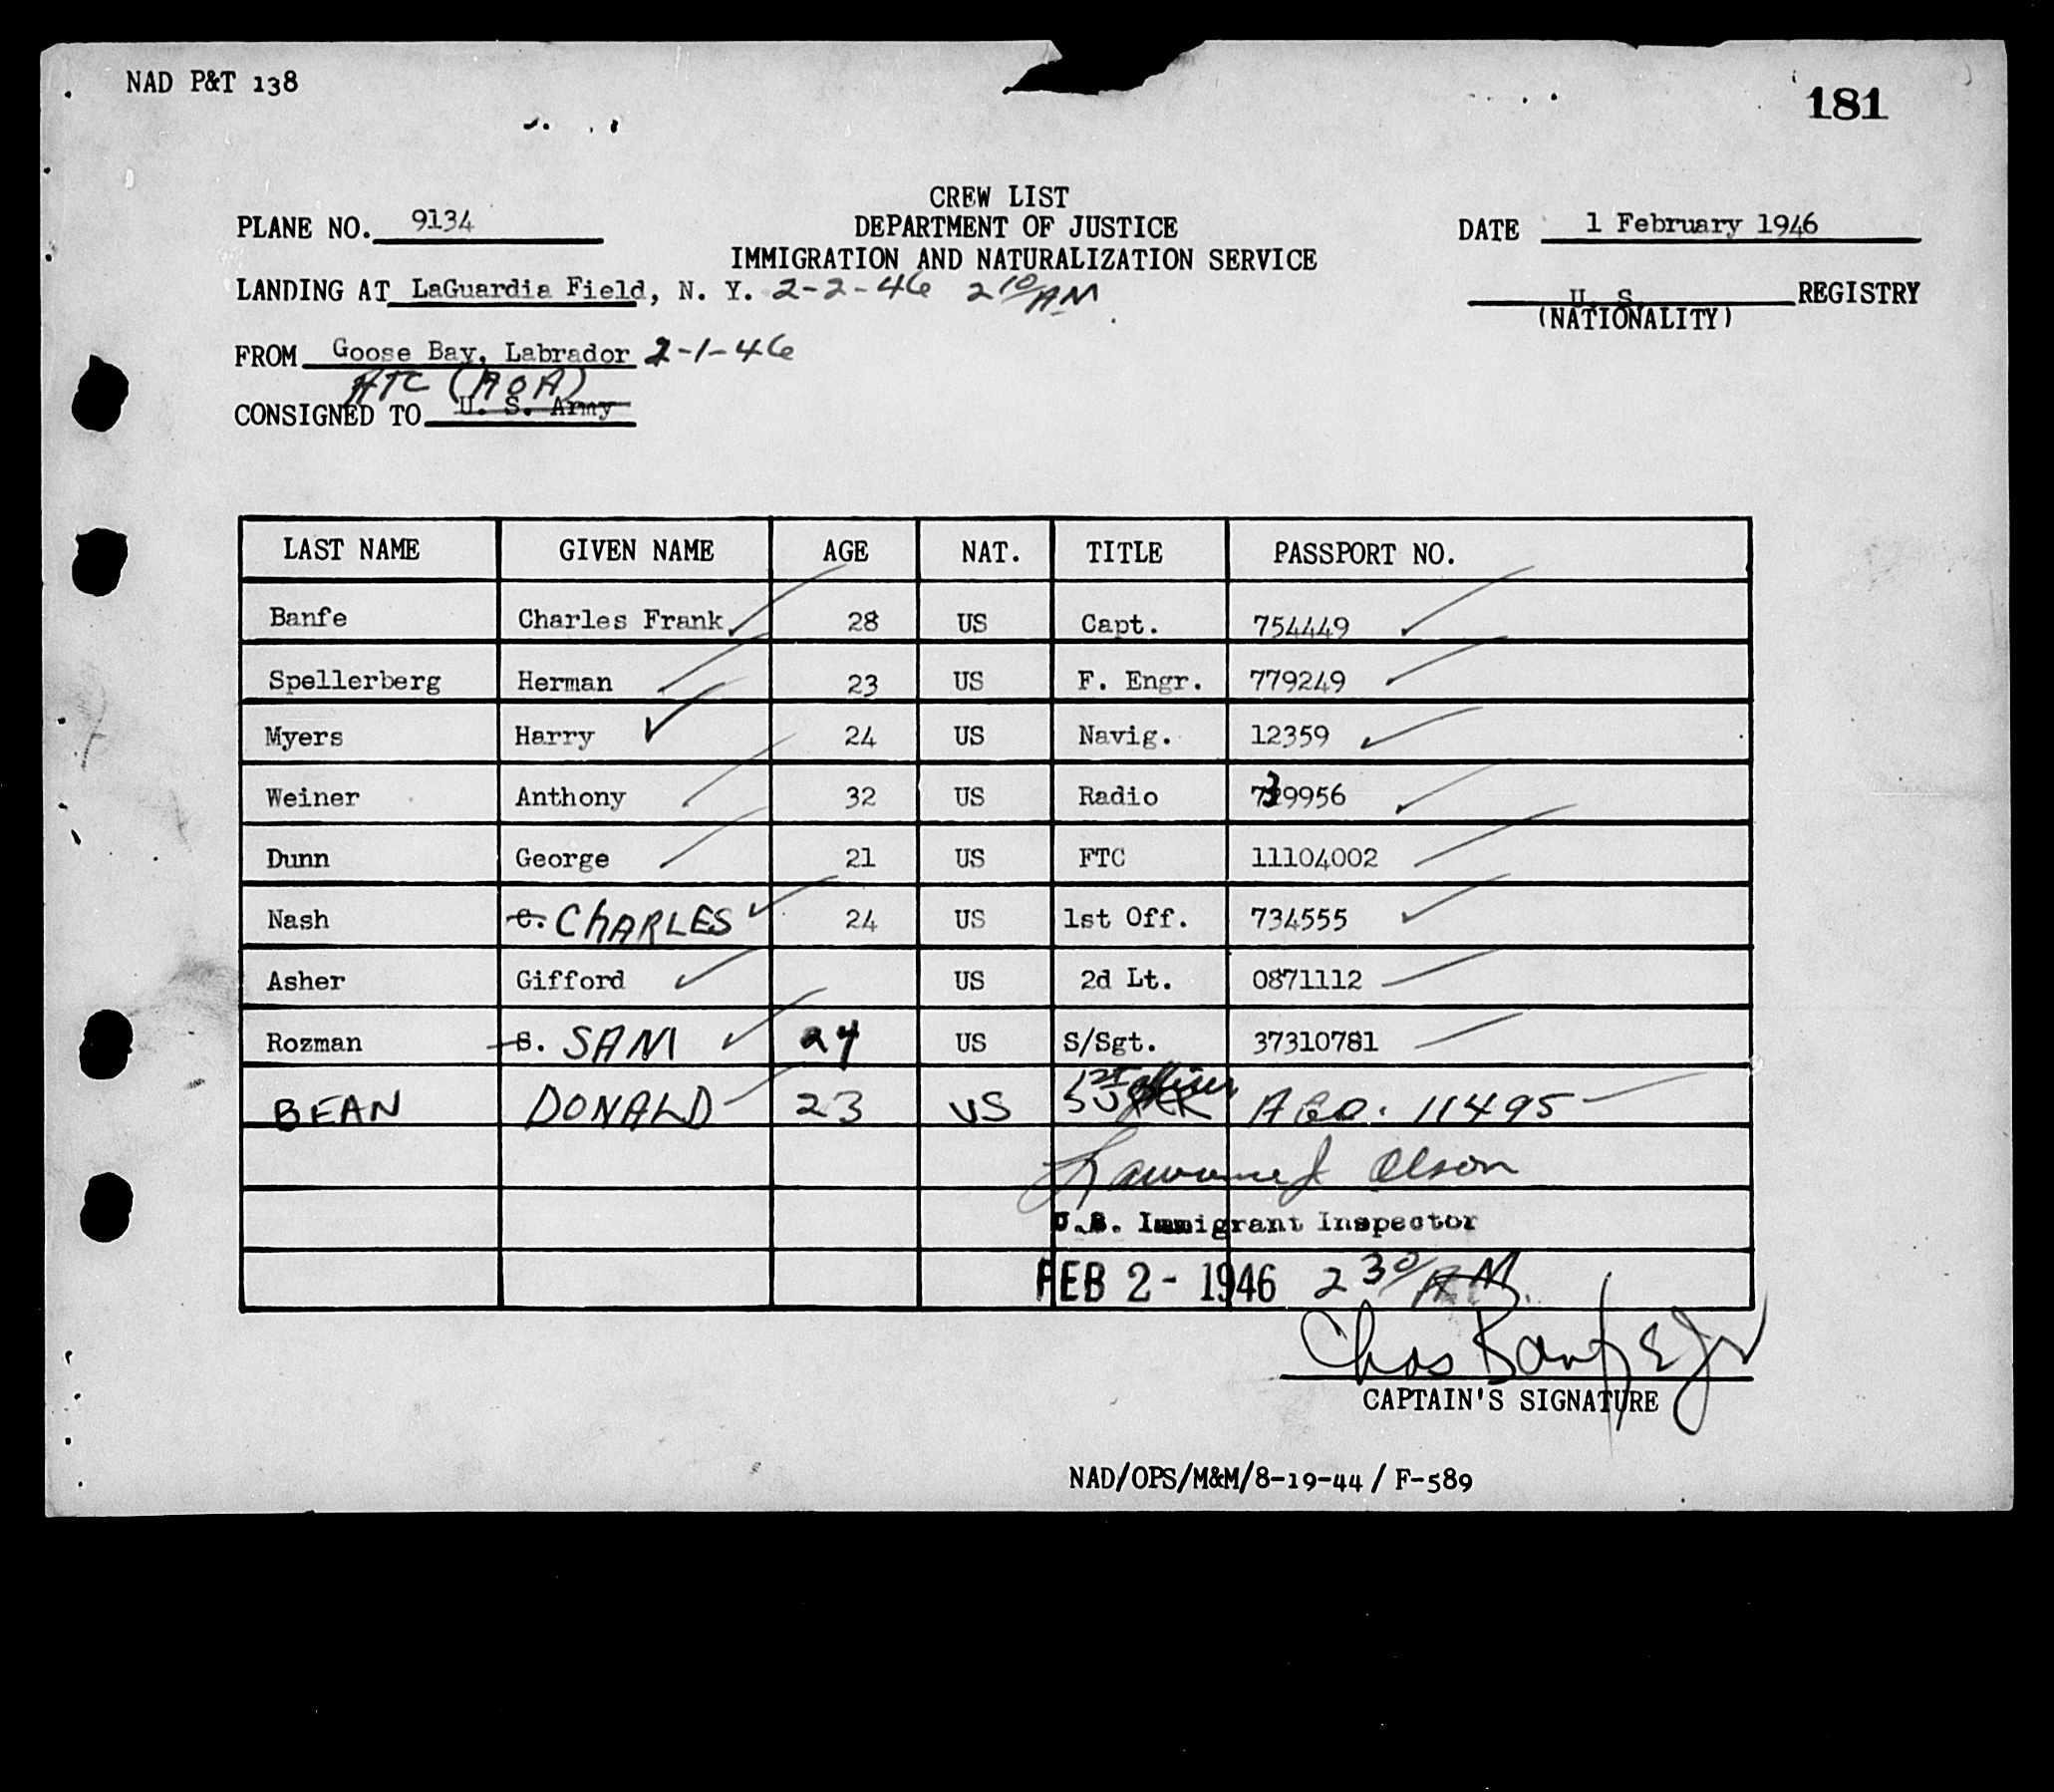 NAD P&T 138
181
CREW LIST
PLANE NO. 9134 DEPARTMENT OF JUSTICE DATE 1 February 1946
IMMIGRATION AND NATURALIZATION SERVICE
LANDING AT LaGuardia Field, N. Y. 2-2-46 2 10/AM U. S. REGISTRY
(NATIONALITY)
FROM Goose Bay, Labrador 2-1-46
ATC (AOA)
CONSIGNED TO U. S. Army
LAST NAME GIVEN NAME AGE NAT. TITLE PASSPORT NO.
Banfe Charles Frank 28 US Capt. 754449
Spellerberg Herman 23 US F. Engr. 779249
Myers Harry 24 US Navig. 12359
Weiner Anthony 32 US Radio 739956
Dunn George 21 US FTC 11104002
Nash C. CHARLES 24 US 1st Off. 734555
Asher Gifford US 2d Lt. 0871112
Rozman S. SAM 24 US S/Sgt. 37310781
BEAN DONALD 23 US 1st Officer AGO. 11495
Lawrence J Olson
U.S. Immigrant Inspector
FEB 2 - 1946 2 30/AM.
Chas Banfe Jr
CAPTAIN'S SIGNATURE
NAD/OPS/M&M/8-19-44 / F-589